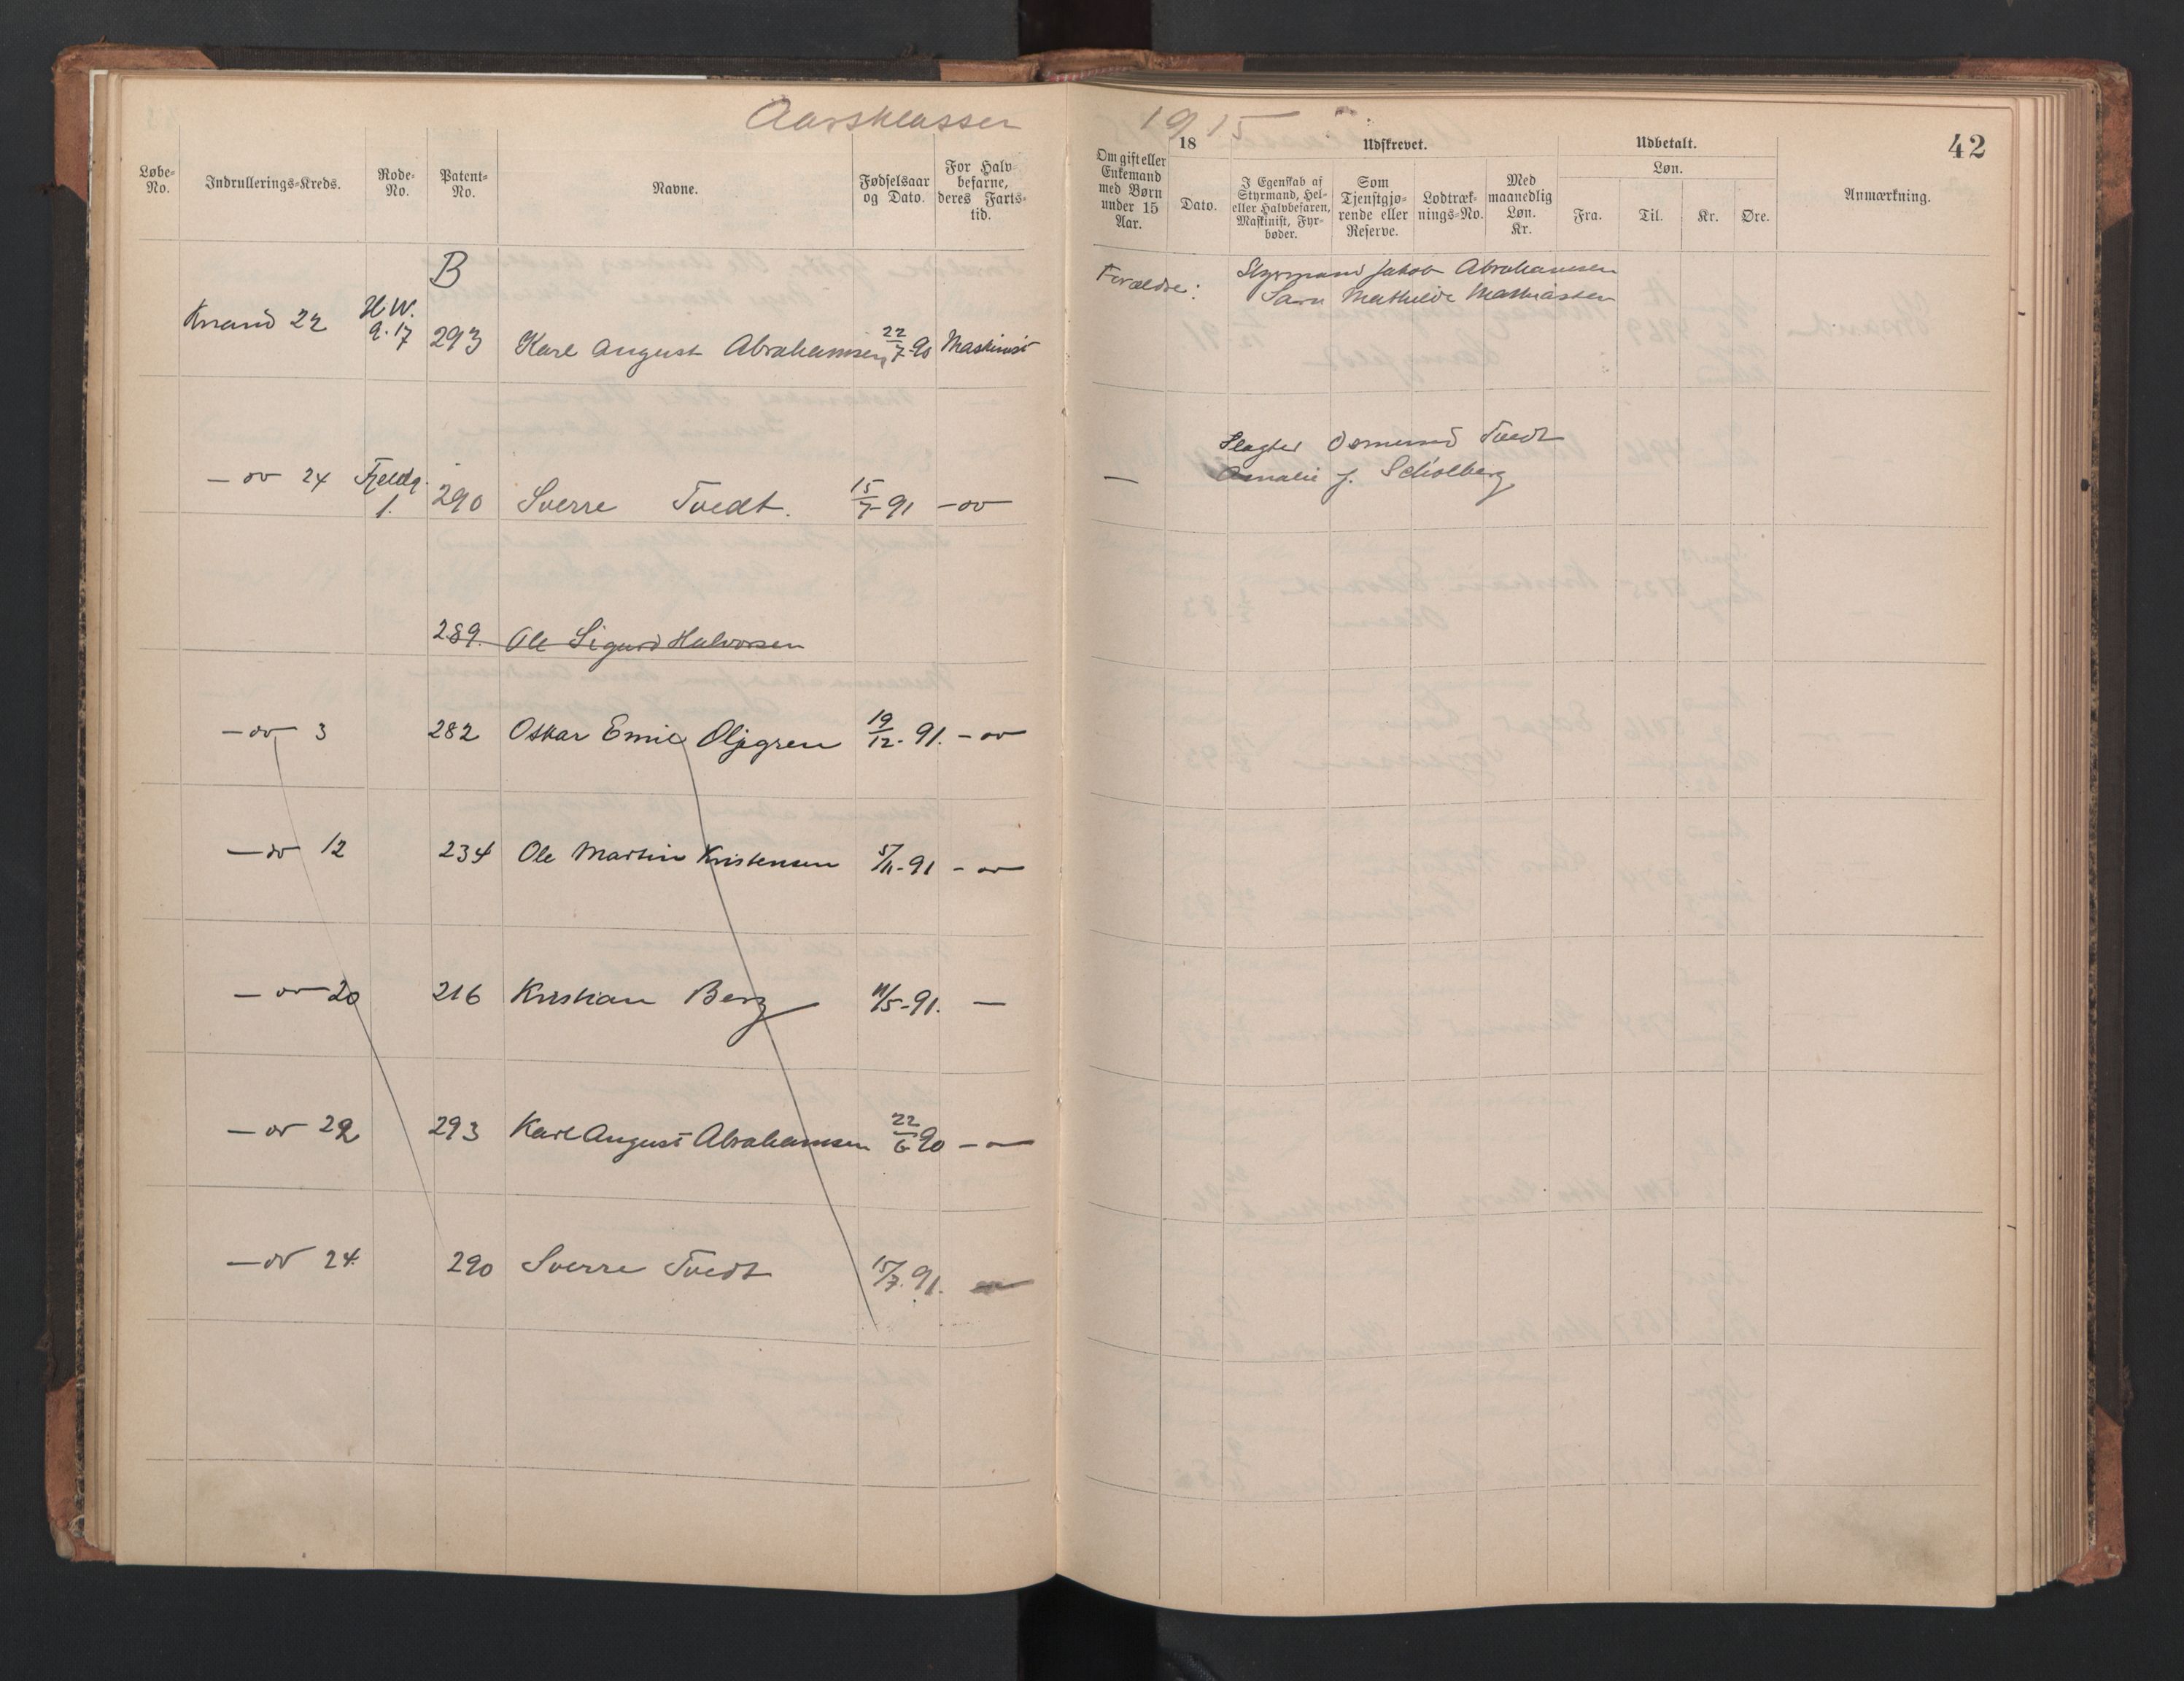 Aarsklassen 1915
42
Løbe-No.
Indrullerings-Kreds.
Rode-No.
Patent-No.
Navne.
Fødselsaar og Dato.
For Halvbefarne, deres Fartstid.
Om gift eller Enkemand med Børn under 15 Aar.
18
Dato.
Udskrevet.
I Egenskab af Styrmand, Hel- eller Halvbefaren, Maskinist, Fyrbøder.
Som Tjenstgjørende eller Reserve.
Lodtræknings-No.
Med maanedlig Løn. Kr.
Udbetalt.
Løn.
Fra.
Til.
Kr.
Øre.
Anmærkning.
B
Krsand 22 H.W. 9.17 293 Karl August Abrahamsen 22/7-90 Maskinist
Forældre: Styrmand Jakob Abrahamsen
Sara Mathilde Mathiassen
— do 24 Fjeldg. 1. 290 Sverre Tvedt. 15/7-91 — do
— Slagter Osmund Tvedt
Amalie J. Schiolberg
289. Ole Sigurd Halvorsen
— do 3 282 Oskar Emil Oljegren 19/12-91. — do
— do 12 234 Ole Martin Kristensen 5/11-91 — do
— do 20 216 Kristian Berg 11/5-91. —
— do 22 293 Karl August Abrahamsen 22/6 90 — do
— do 24. 290 Sverre Tvedt 15/7. 91.